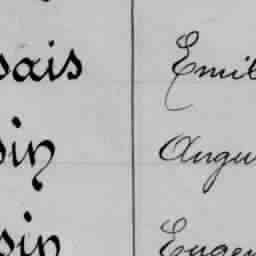 sais Emil
sin Augu
sin Eugen